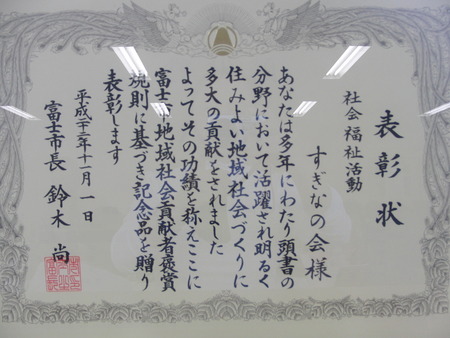 表彰状
社会福祉活動
すぎなの会様
あなたは多年にわたり頭書の
分野において活躍され明るく
住みよい地域社会づくりに
多大の貢献をされました
よってその功績を称えここに
富士市地域社会貢献者褒賞
規則に基づき記念品を贈り
表彰します
平成二十二年十一月一日
富士市長 鈴木 尚